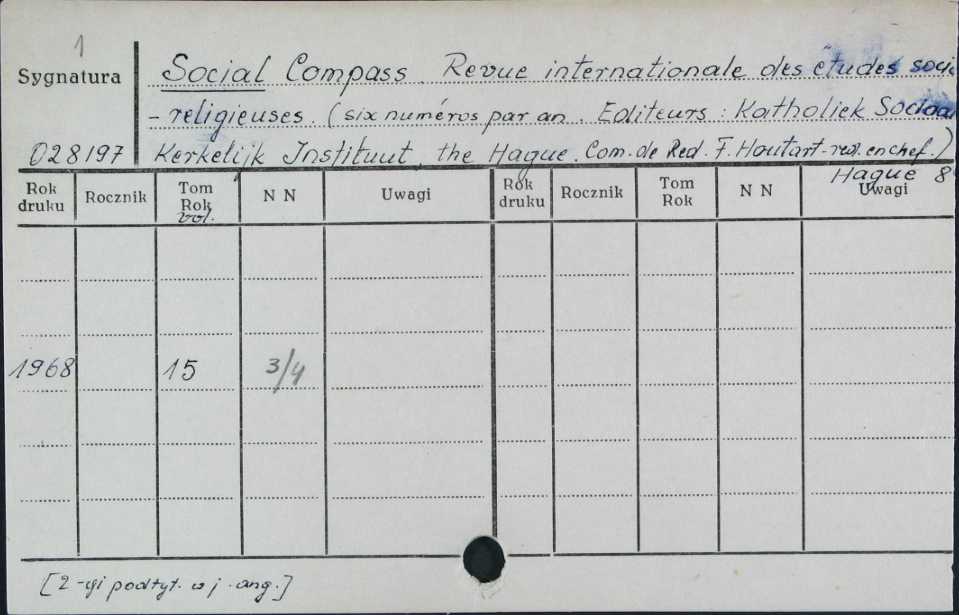 1
Sygnatura Social Compass. Revue internationale des études socio
- religieuses. (six numéros par an. Editeurs: Katholiek Sociaal
028197 Kerkelijk Instituut, the Hague. Com. de Red. F. Houtart-red. en chef.)
Hague 8
Rok druku Rocznik Tom Rok vol. N N Uwagi Rok druku Rocznik Tom Rok N N Uwagi
1968 15 3/4
[2-gi podtyt. w j. ang.]